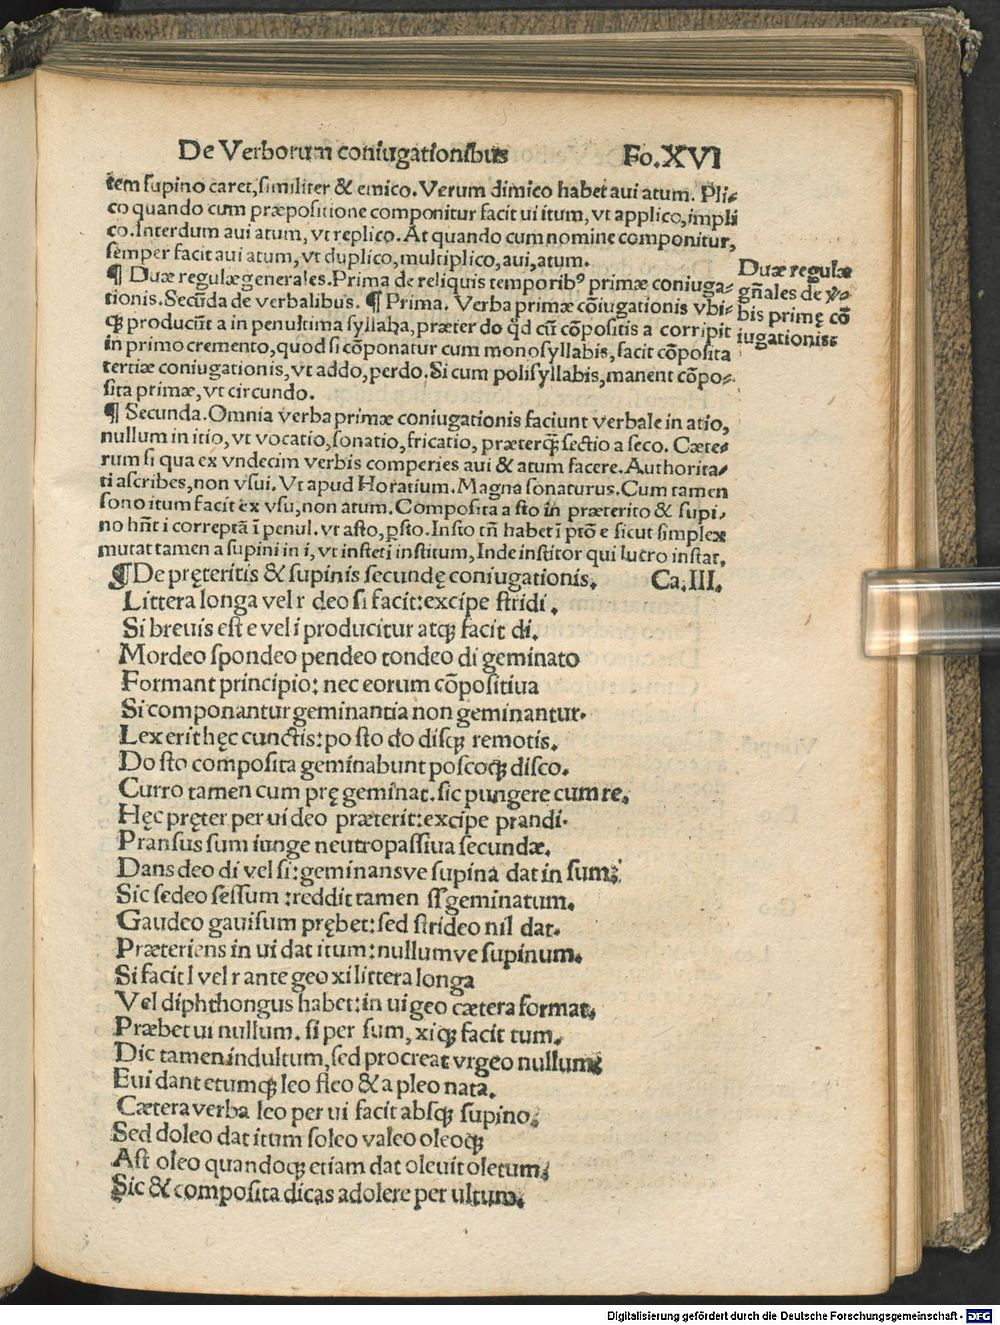 De Verborum coniugationibus Fo.XVI
tem supino caret, similiter & emico. Verum dimico habet aui atum. Pli⸗
co quando cum præpositione componitur facit ui itum, vt applico, impli
co. Interdum aui atum, vt replico. At quando cum nomine componitur,
semper facit aui atum, vt duplico, multiplico, aui, atum.
¶ Duæ regulæ generales. Prima de reliquis temporibꝰ primæ coniuga⸗
tionis. Secūda de verbalibus. ¶ Prima. Verba primæ cōiugationis vbi⸗
qꝫ producūt a in penultima syllaba, præter do qd̄ cū cōpositis a corripit
in primo cremento, quod si cōponatur cum monosyllabis, facit cōposita
tertiæ coniugationis, vt addo, perdo. Si cum polisyllabis, manent cōpo⸗
sita primæ, vt circundo.
Duæ regulæ
gn̄ales de
bis primę cō
iugationis:
¶ Secunda. Omnia verba primæ coniugationis faciunt verbale in atio,
nullum in itio, vt vocatio, sonatio, fricatio, præterqꝫ̄ sectio a seco. Cæte⸗
rum si qua ex vndecim verbis comperies aui & atum facere. Authorita⸗
ti ascribes, non vsui. Vt apud Horatium. Magna sonaturus. Cum tamen
sono itum facit ex vsu, non atum. Composita a sto in præterito & supi⸗
no hn̄t i correptā ī penul. vt asto, ꝑsto. Insto tn̄ habet ī ptō e sicut simplex
mutat tamen a supini in i, vt insteti institum, Inde institor qui lucro instat.
¶ De pręteritis & supinis secundę coniugationis. Ca.III.
Littera longa vel r deo si facit: excipe stridi.
Si breuis est e vel i producitur atqꝫ facit di.
Mordeo spondeo pendeo tondeo di geminato
Formant principio: nec eorum cōpositiua
Si componantur geminantia non geminantur.
Lex erit hęc cunctis: po sto do discqꝫ remotis.
Do sto composita geminabunt poscoqꝫ disco.
Curro tamen cum prę geminat. sic pungere cum re.
Hęc pręter per ui deo præterit: excipe prandi.
Pransus sum iunge neutropassiua secundæ.
Dans deo di vel si: geminansve supina dat in sum:
Sic sedeo sessum: reddit tamen ss geminatum.
Gaudeo gauisum prębet: sed strideo nil dat.
Præteriens in ui dat itum: nullumve supinum.
Si facit l vel r ante geo xi littera longa
Vel diphthongus habet: in ui geo cætera format.
Præbet ui nullum. si per sum, xiqꝫ facit tum.
Dic tamen indultum, sed procreat vrgeo nullum:
Eui dant etumqꝫ leo fleo & a pleo nata.
Cætera verba leo per ui facit absqꝫ supino.
Sed doleo dat itum soleo valeo oleoqꝫ
Ast oleo quandoqꝫ etiam dat oleuit oletum:
Sic & composita dicas adolere per ultum.
Digitalisierung gefördert durch die Deutsche Forschungsgemeinschaft - DFG